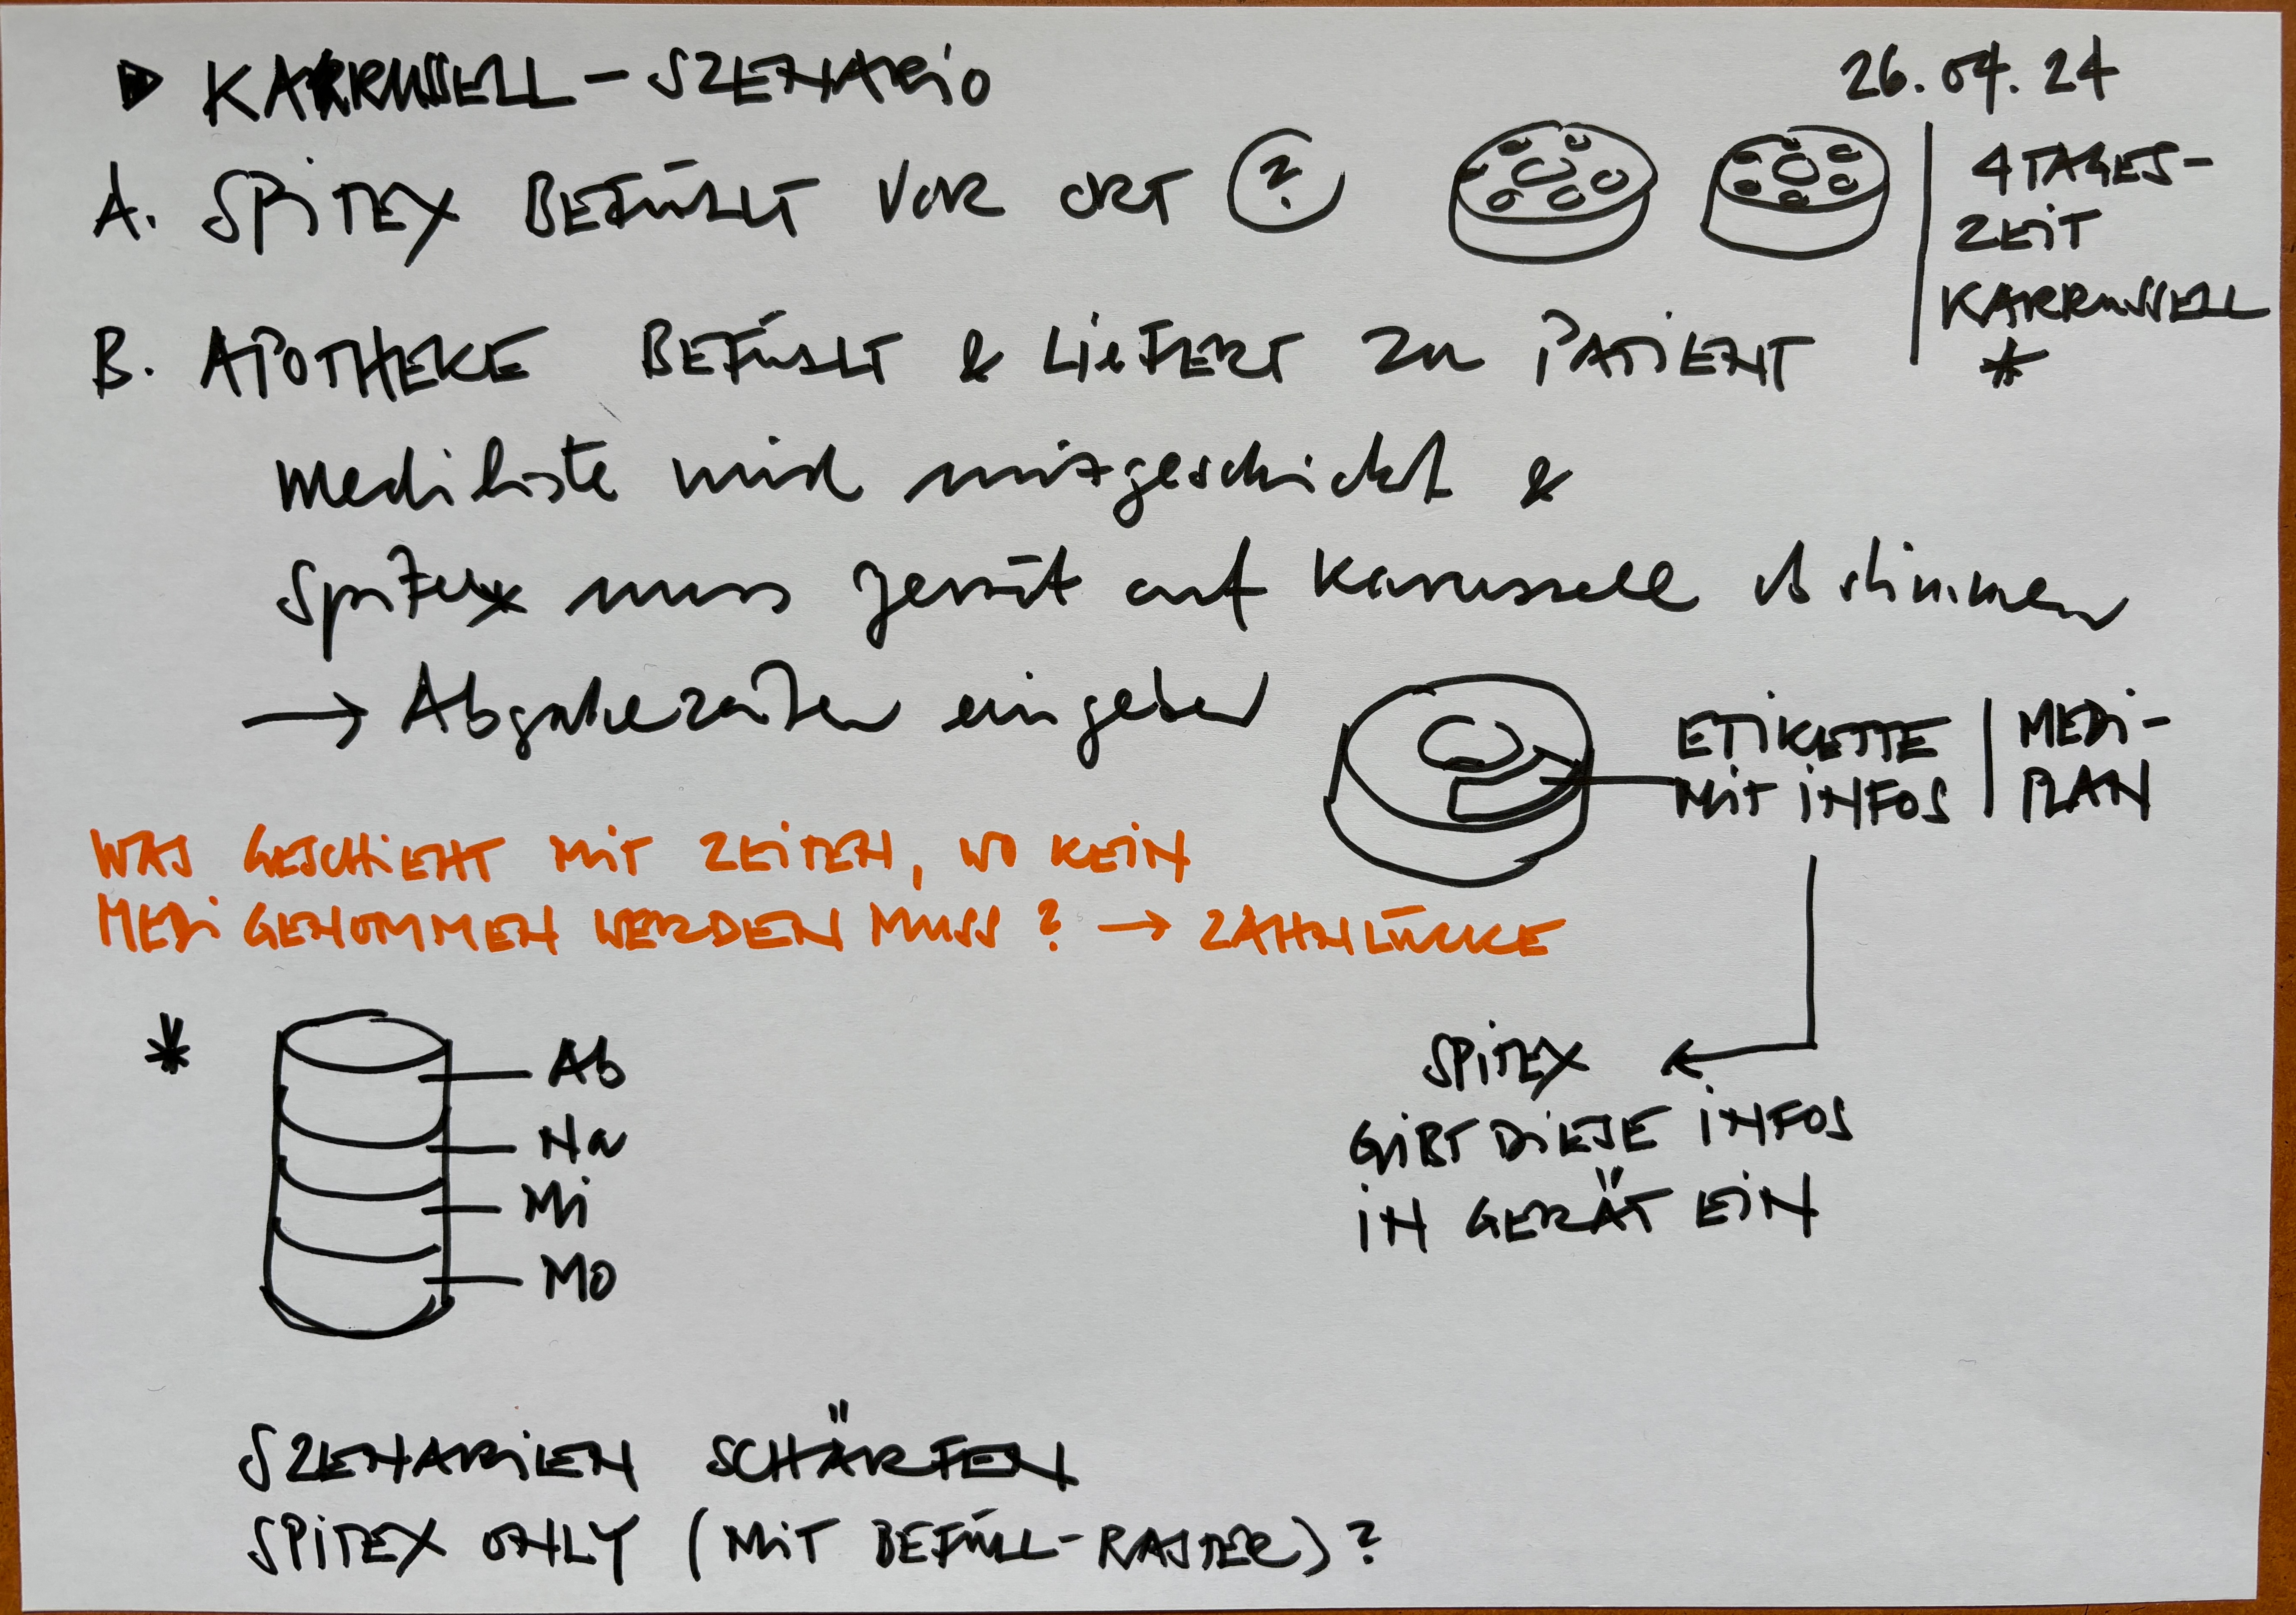 KARRUSSELL – SZENARIO
26.04.24
A. SPITEX BEFÜLLT VOR ORT ?
4 TAGES-
ZEIT
KARRUSSELL
*
B. APOTHEKE BEFÜLLT & LIEFERT ZU PATIENT
Mediliste wird mitgeschickt &
Spitex muss Gerät auf Karussell abstimmen
→ Abgabezeiten eingeben
ETIKETTE
MIT INFOS
MEDI-
PLAN
WAS GESCHIEHT MIT ZEITEN, WO KEIN
MEDI GENOMMEN WERDEN MUSS? → ZAHNLÜCKE
*
Ab
Na
Mi
Mo
SPITEX ←
GIBT DIESE INFOS
IN GERÄT EIN
SZENARIEN SCHÄRFEN
SPITEX ONLY (MIT BEFÜLL-RASTER)?